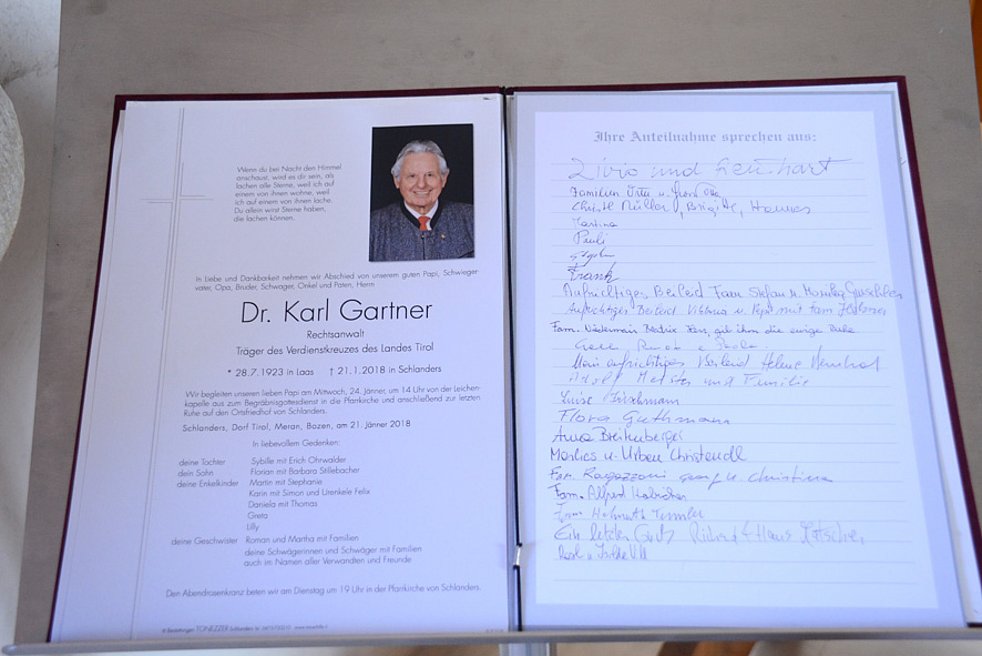 Wenn du bei Nacht den Himmel
anschaust, wird es dir sein, als
lachen alle Sterne, weil ich auf
einem von ihnen wohne, weil
ich auf einem von ihnen lache.
Du allein wirst Sterne haben,
die lachen können.
In Liebe und Dankbarkeit nehmen wir Abschied von unserem guten Papi, Schwieger
vater, Opa, Bruder, Schwager, Onkel und Paten, Herrn
Dr. Karl Gartner
Rechtsanwalt
Träger des Verdienstkreuzes des Landes Tirol
* 28.7.1923 in Laas † 21.1.2018 in Schlanders
Wir begleiten unseren lieben Papi am Mittwoch, 24. Jänner, um 14 Uhr von der Leichen-
kapelle aus zum Begräbnisgottesdienst in die Pfarrkirche und anschließend zur letzten
Ruhe auf den Ortsfriedhof von Schlanders.
Schlanders, Dorf Tirol, Meran, Bozen, am 21. Jänner 2018
In liebevollem Gedenken:
deine Tochter Sybille mit Erich Ohrwalder
dein Sohn Florian mit Barbara Stillebacher
deine Enkelkinder Martin mit Stephanie
Karin mit Simon und Urenkele Felix
Daniela mit Thomas
Greta
Lilly
deine Geschwister Roman und Martha mit Familien
deine Schwägerinnen und Schwäger mit Familien
auch im Namen aller Verwandten und Freunde
Den Abendrosenkranz beten wir am Dienstag um 19 Uhr in der Pfarrkirche von Schlanders.
Bestattungen TONEZZER Schlanders
Ihre Anteilnahme sprechen aus:
und
Familien
Christl Müller, Brigitte, Hannes
Martina
Pauli
Frank
Aufrichtiges Beileid Fam Stefan u. Monika
Aufrichtiges Beileid Viktoria u. Pepi mit Fam
Fam. Beatrix Herr, gib ihm die ewige Ruhe
Mein aufrichtiges Beileid Helene
Adolf und Familie
Luise
Flora Guthmann
Anna Breitenberger
Marlies u. Urban Christandl
Fam. Ragazzoni u. Christine
Fam. Alfred
Helmuth
Ein letzter Gruß Richard